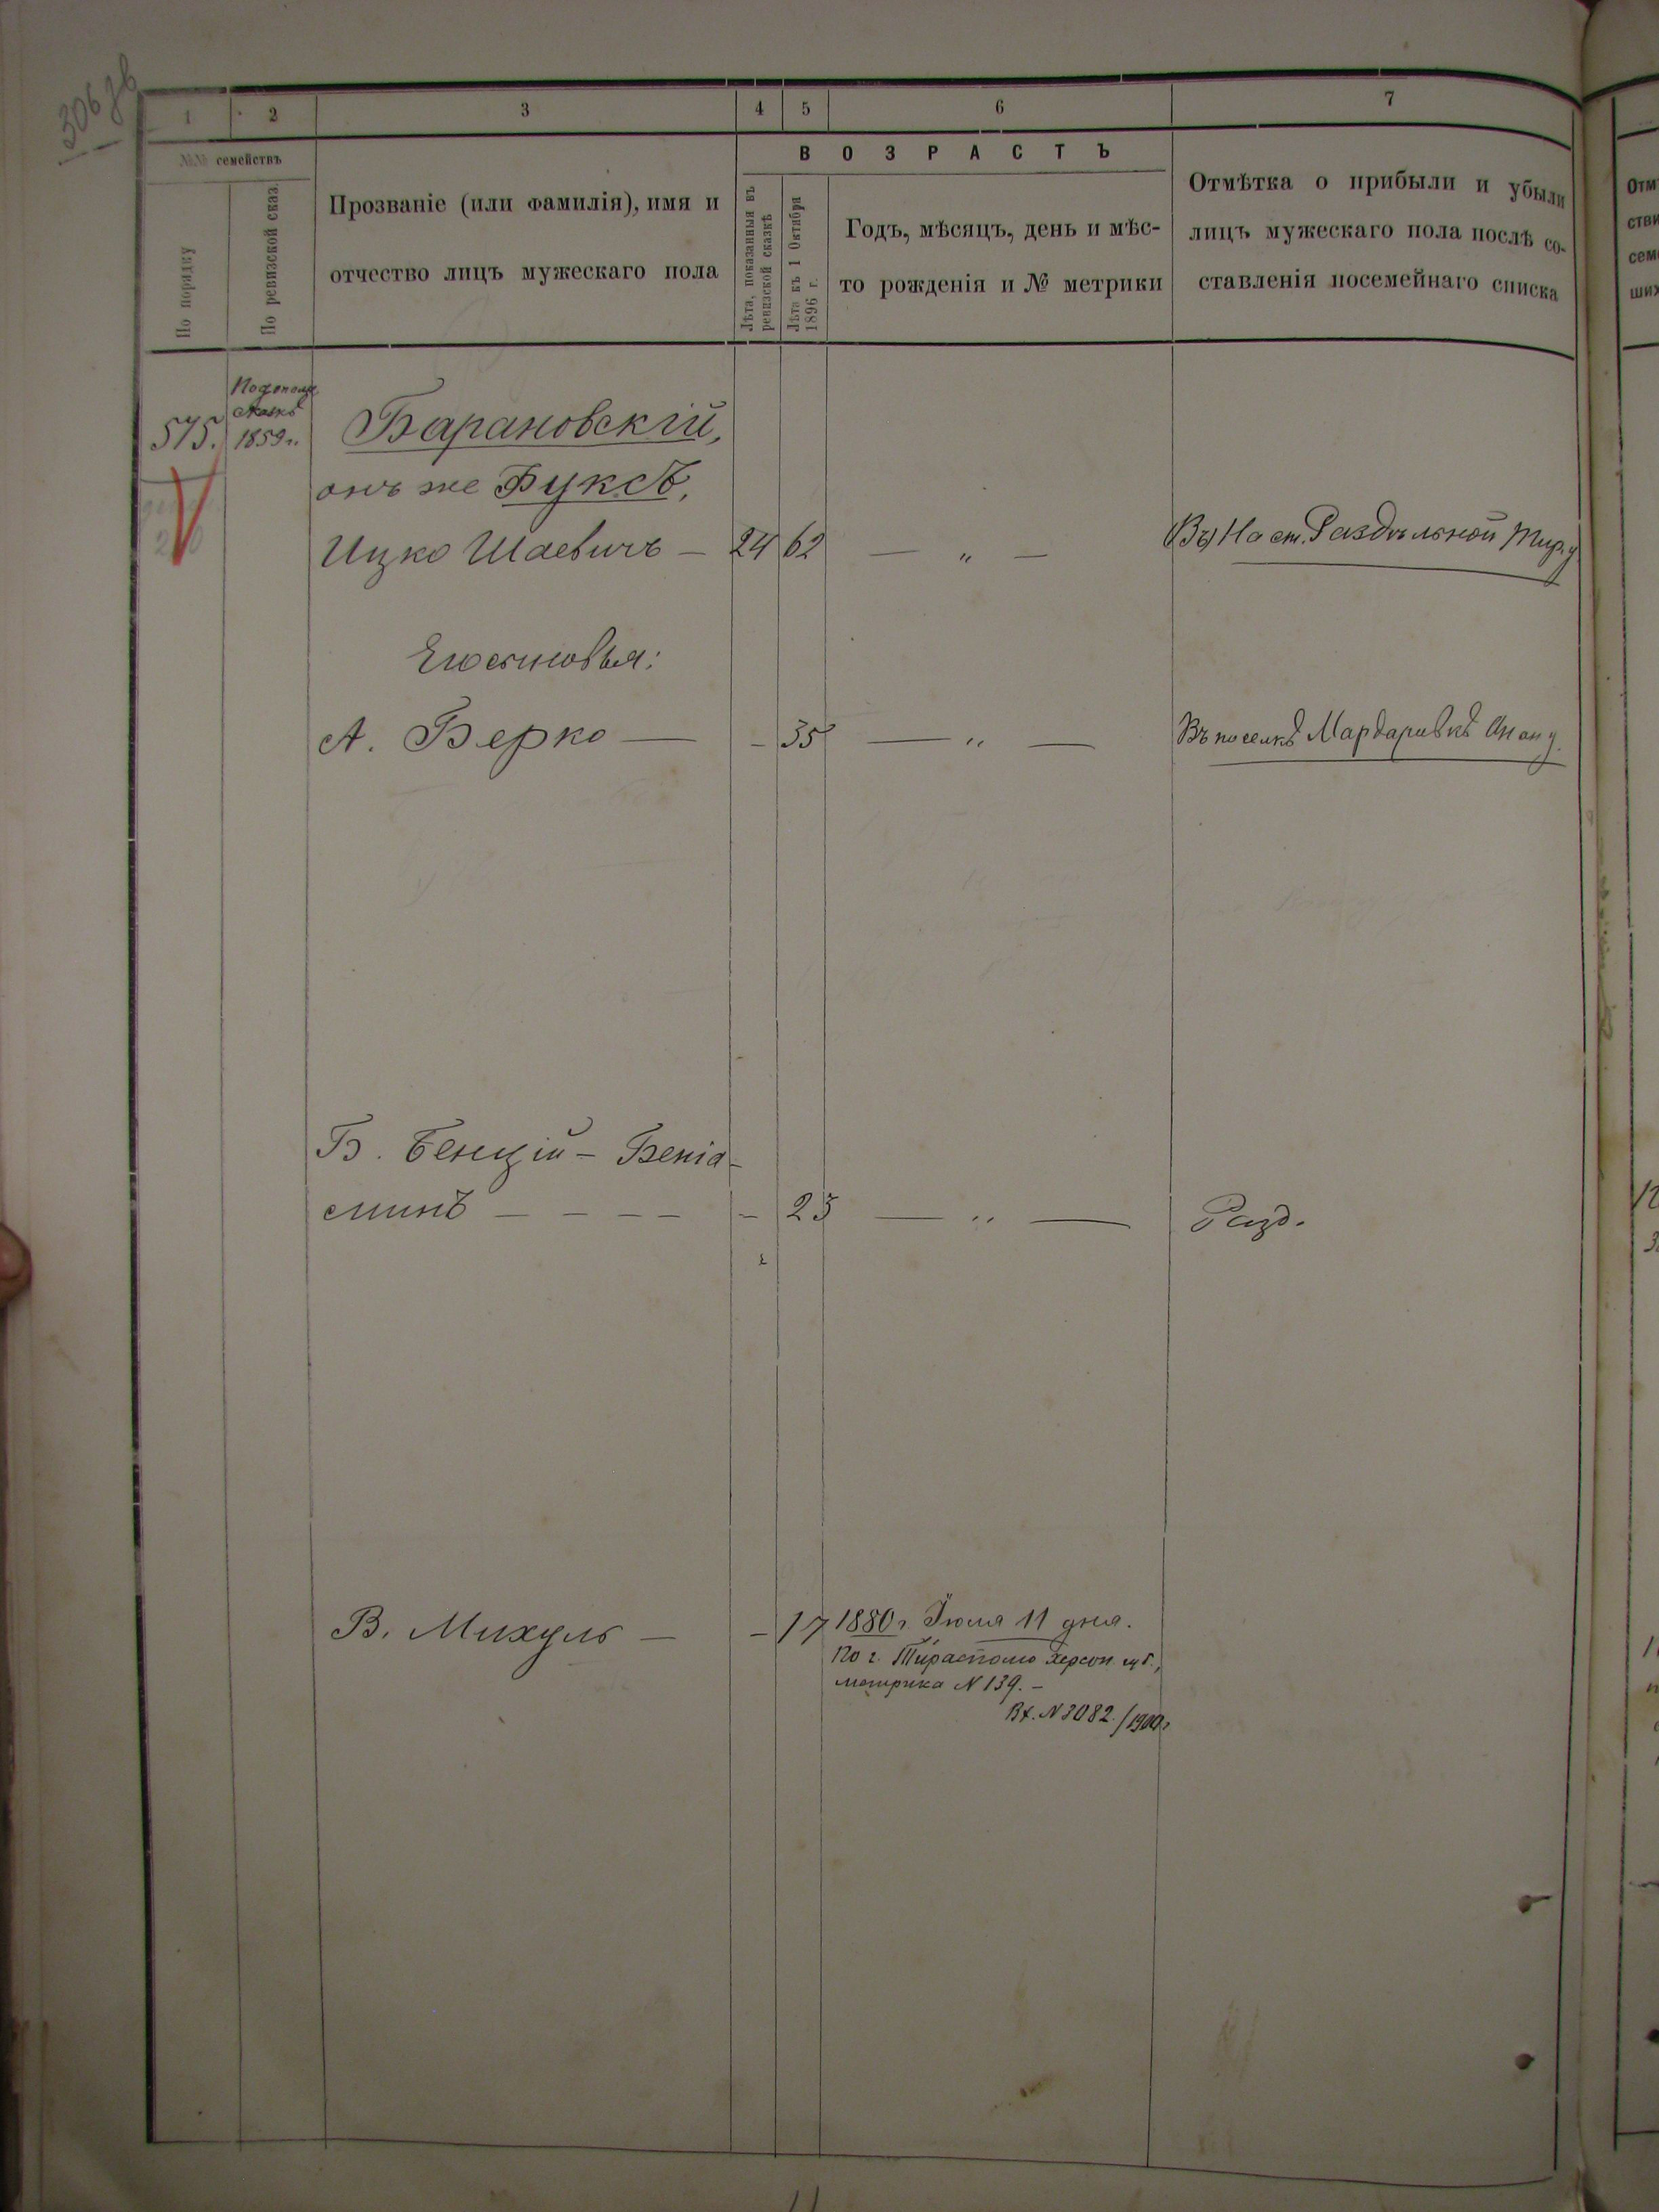 306 зв
1 2 3 4 5 6 7
№№ семействъ
По порядку
По ревизской сказ.
Прозваніе (или фамилія), имя и
отчество лицъ мужескаго пола
ВОЗРАСТЪ
Лѣта, показанныя въ
ревизской сказкѣ
Лѣта къ 1 Октября
1896 г.
Годъ, мѣсяцъ, день и мѣс-
то рожденія и № метрики
Отмѣтка о прибыли и убыли
лицъ мужескаго пола послѣ со-
ставленія посемейнаго списка
575.
1859 г.
Барановскій,
онъ же Буксъ,
Ицко Шаевичъ — 24 62 — „ — На ст. Раздѣльной Тир. у.
Его сыновья:
А. Берко — - 35 — „ — Въ поселкѣ Мардаривкѣ Анан у.
Б. Бенцій - Беніа-
минъ - - - - - 23 — „ — Разд.
В. Михуль — - 17 1880 г. Іюля 11 дня.
По г. Тирасполю Херсон. губ.,
метрика N 139. -
Вх. N 3082 /1900 г.